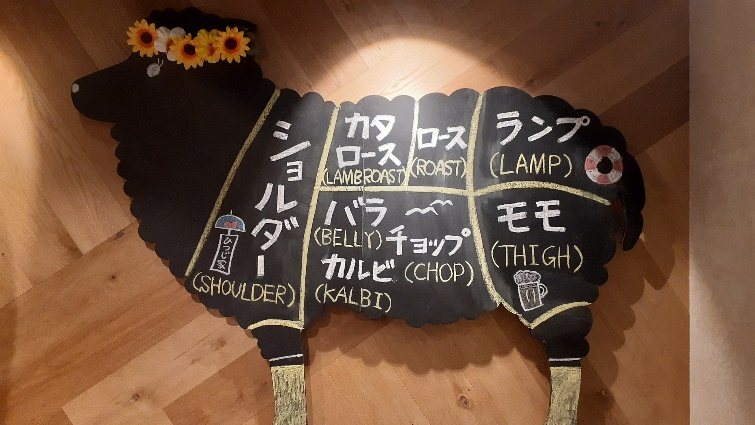 ショルダー
(SHOULDER)
カタ
ロース
(LAMBROAST)
ロース
(ROAST)
ランプ
(LAMP)
バラ
(BELLY)
カルビ
(KALBI)
チョップ
(CHOP)
モモ
(THIGH)